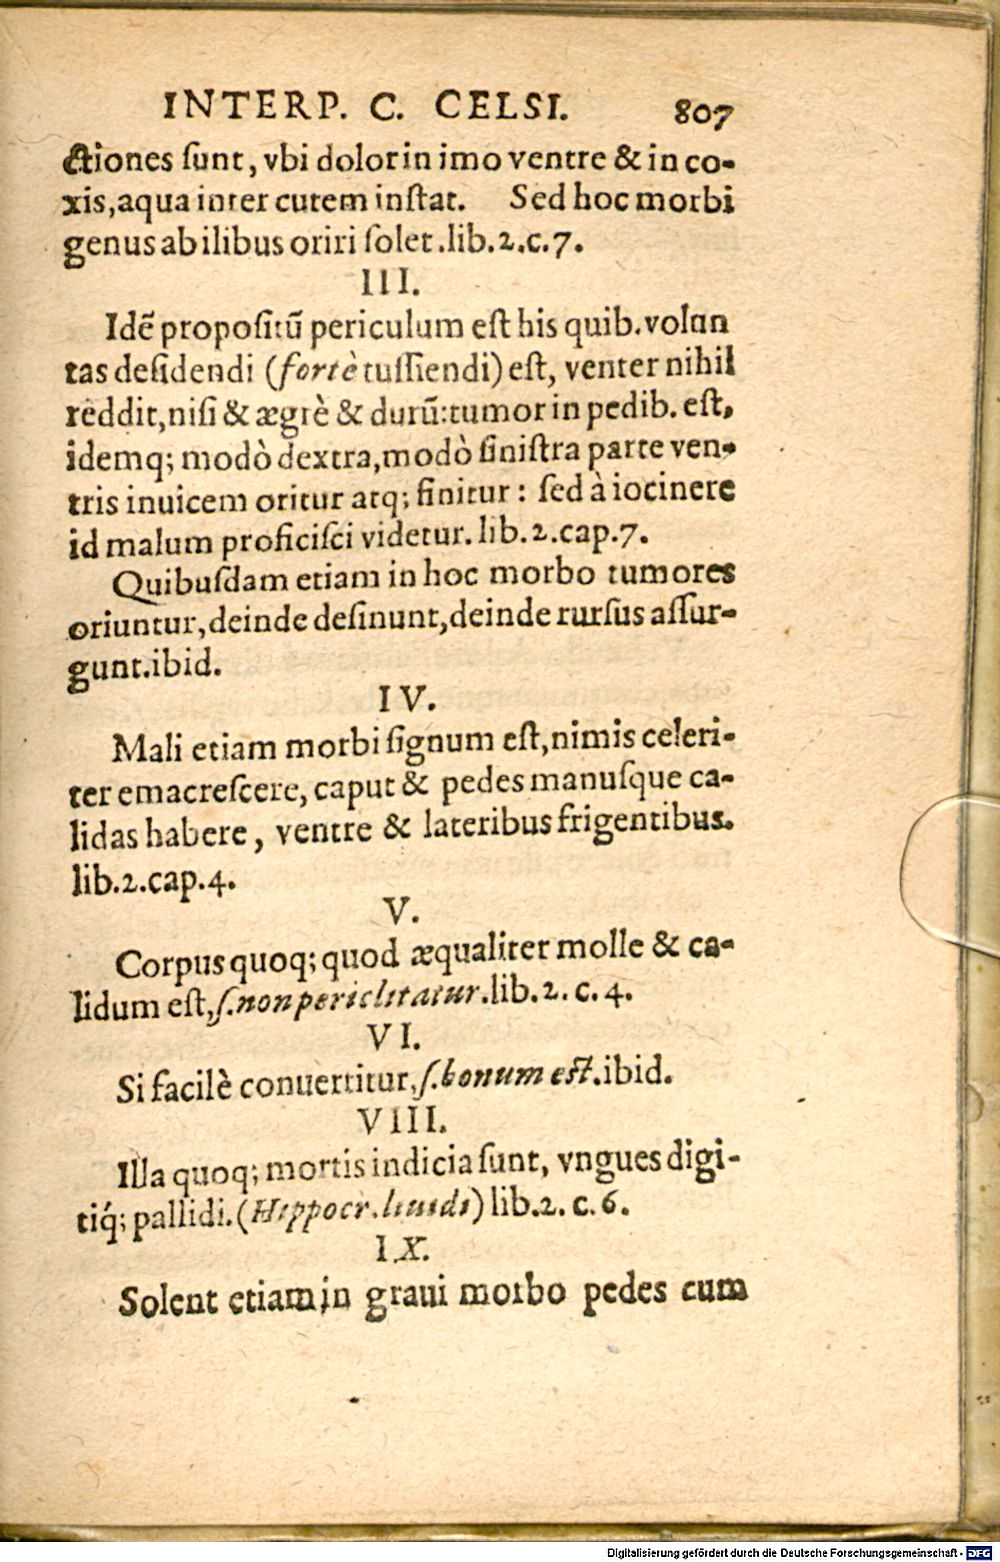 INTERP. C. CELSI. 807
ctiones ſunt, vbi dolor in imo ventre & in co-
xis, aqua inter cutem inſtat. Sed hoc morbi
genus ab ilibus oriri ſolet. lib.2.c.7.
III.
Idẽ propoſitũ periculum eſt his quib. volun
tas deſidendi (fortè tuſſiendi) eſt, venter nihil
reddit, niſi & ægrè & durũ: tumor in pedib. eſt,
idemq; modò dextra, modò ſiniſtra parte ven-
tris inuicem oritur atq; finitur: ſed à iocinere
id malum proficiſci videtur. lib.2.cap.7.
Quibuſdam etiam in hoc morbo tumores
oriuntur, deinde deſinunt, deinde rurſus aſſur-
gunt. ibid.
IV.
Mali etiam morbi ſignum eſt, nimis celeri-
ter emacreſcere, caput & pedes manuſque ca-
lidas habere, ventre & lateribus frigentibus.
lib.2.cap.4.
V.
Corpus quoq; quod æqualiter molle & ca-
lidum eſt, ſ. non periclitatur. lib.2. c. 4.
VI.
Si facilè conuertitur, ſ. bonum eſt. ibid.
VIII.
Illa quoq; mortis indicia ſunt, vngues digi-
tiq́; pallidi. (Hippocr. liuidi) lib.2. c. 6.
IX.
Solent etiam in graui morbo pedes cum
Digitalisierung gefördert durch die Deutsche Forschungsgemeinschaft - DFG